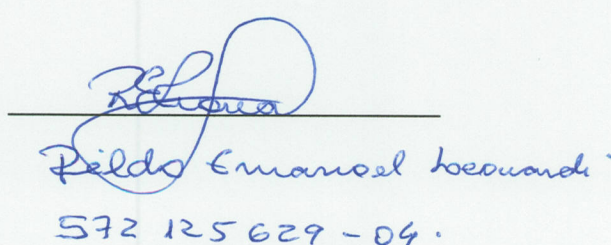 Rildo Emanoel Leonardi
572 125 629 - 04.